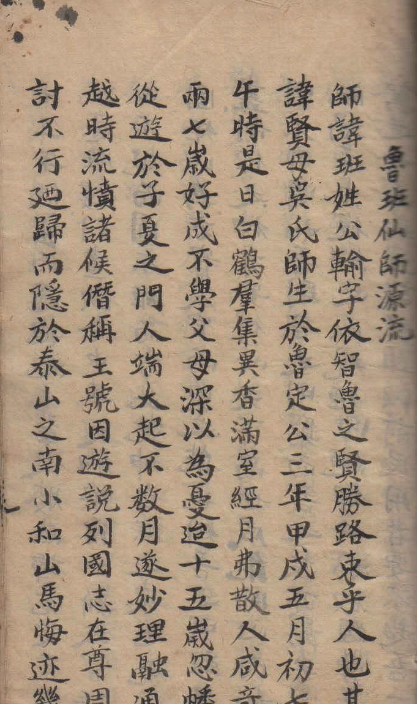 魯班仙師源流
師諱班姓公輸字依智魯之賢勝路東乎人也其
諱賢母吳氏師生於魯定公三年甲戌五月初七
午時是日白鶴羣集異香滿室經月弗散人咸奇
兩七歲好成不學父母深以為憂迨十五歲忽幡
從遊於子夏之門人端大起不数月遂妙理融通
越時流憤諸候僭稱王號因遊說列國志在尊周
討不行廼歸而隱於泰山之南小和山馬晦迹幾